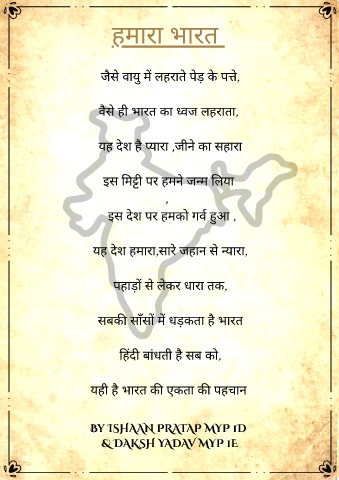 हमारा भारत
जैसे वायु में लहराते पेड़ के पत्ते,
वैसे ही भारत का ध्वज लहराता,
यह देश है प्यारा ,जीने का सहारा
इस मिट्टी पर हमने जन्म लिया
,
इस देश पर हमको गर्व हुआ ,
यह देश हमारा,सारे जहान से न्यारा,
पहाड़ों से लेकर धारा तक,
सबकी साँसों में धड़कता है भारत
हिंदी बांधती है सब को,
यही है भारत की एकता की पहचान
BY ISHAAN PRATAP MYP 1D
& DAKSH YADAV MYP 1E